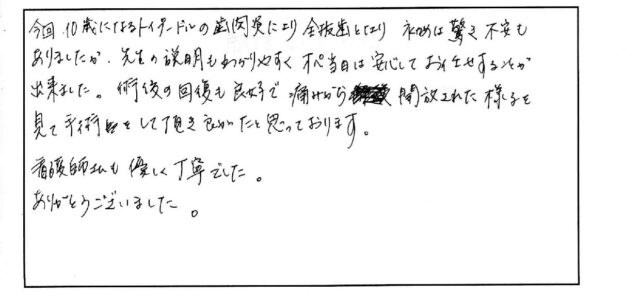 今回、10歳になるトイプードルの歯周炎により全抜歯となり、初めは驚き不安も
ありましたが、先生の説明もわかりやすく、オペ当日は安心してお任せすることが
出来ました。術後の回復も良好で痛みから開放された様子を
見て手術をして頂き良かったと思っております。
看護師さんも優しく丁寧でした。
ありがとうございました。